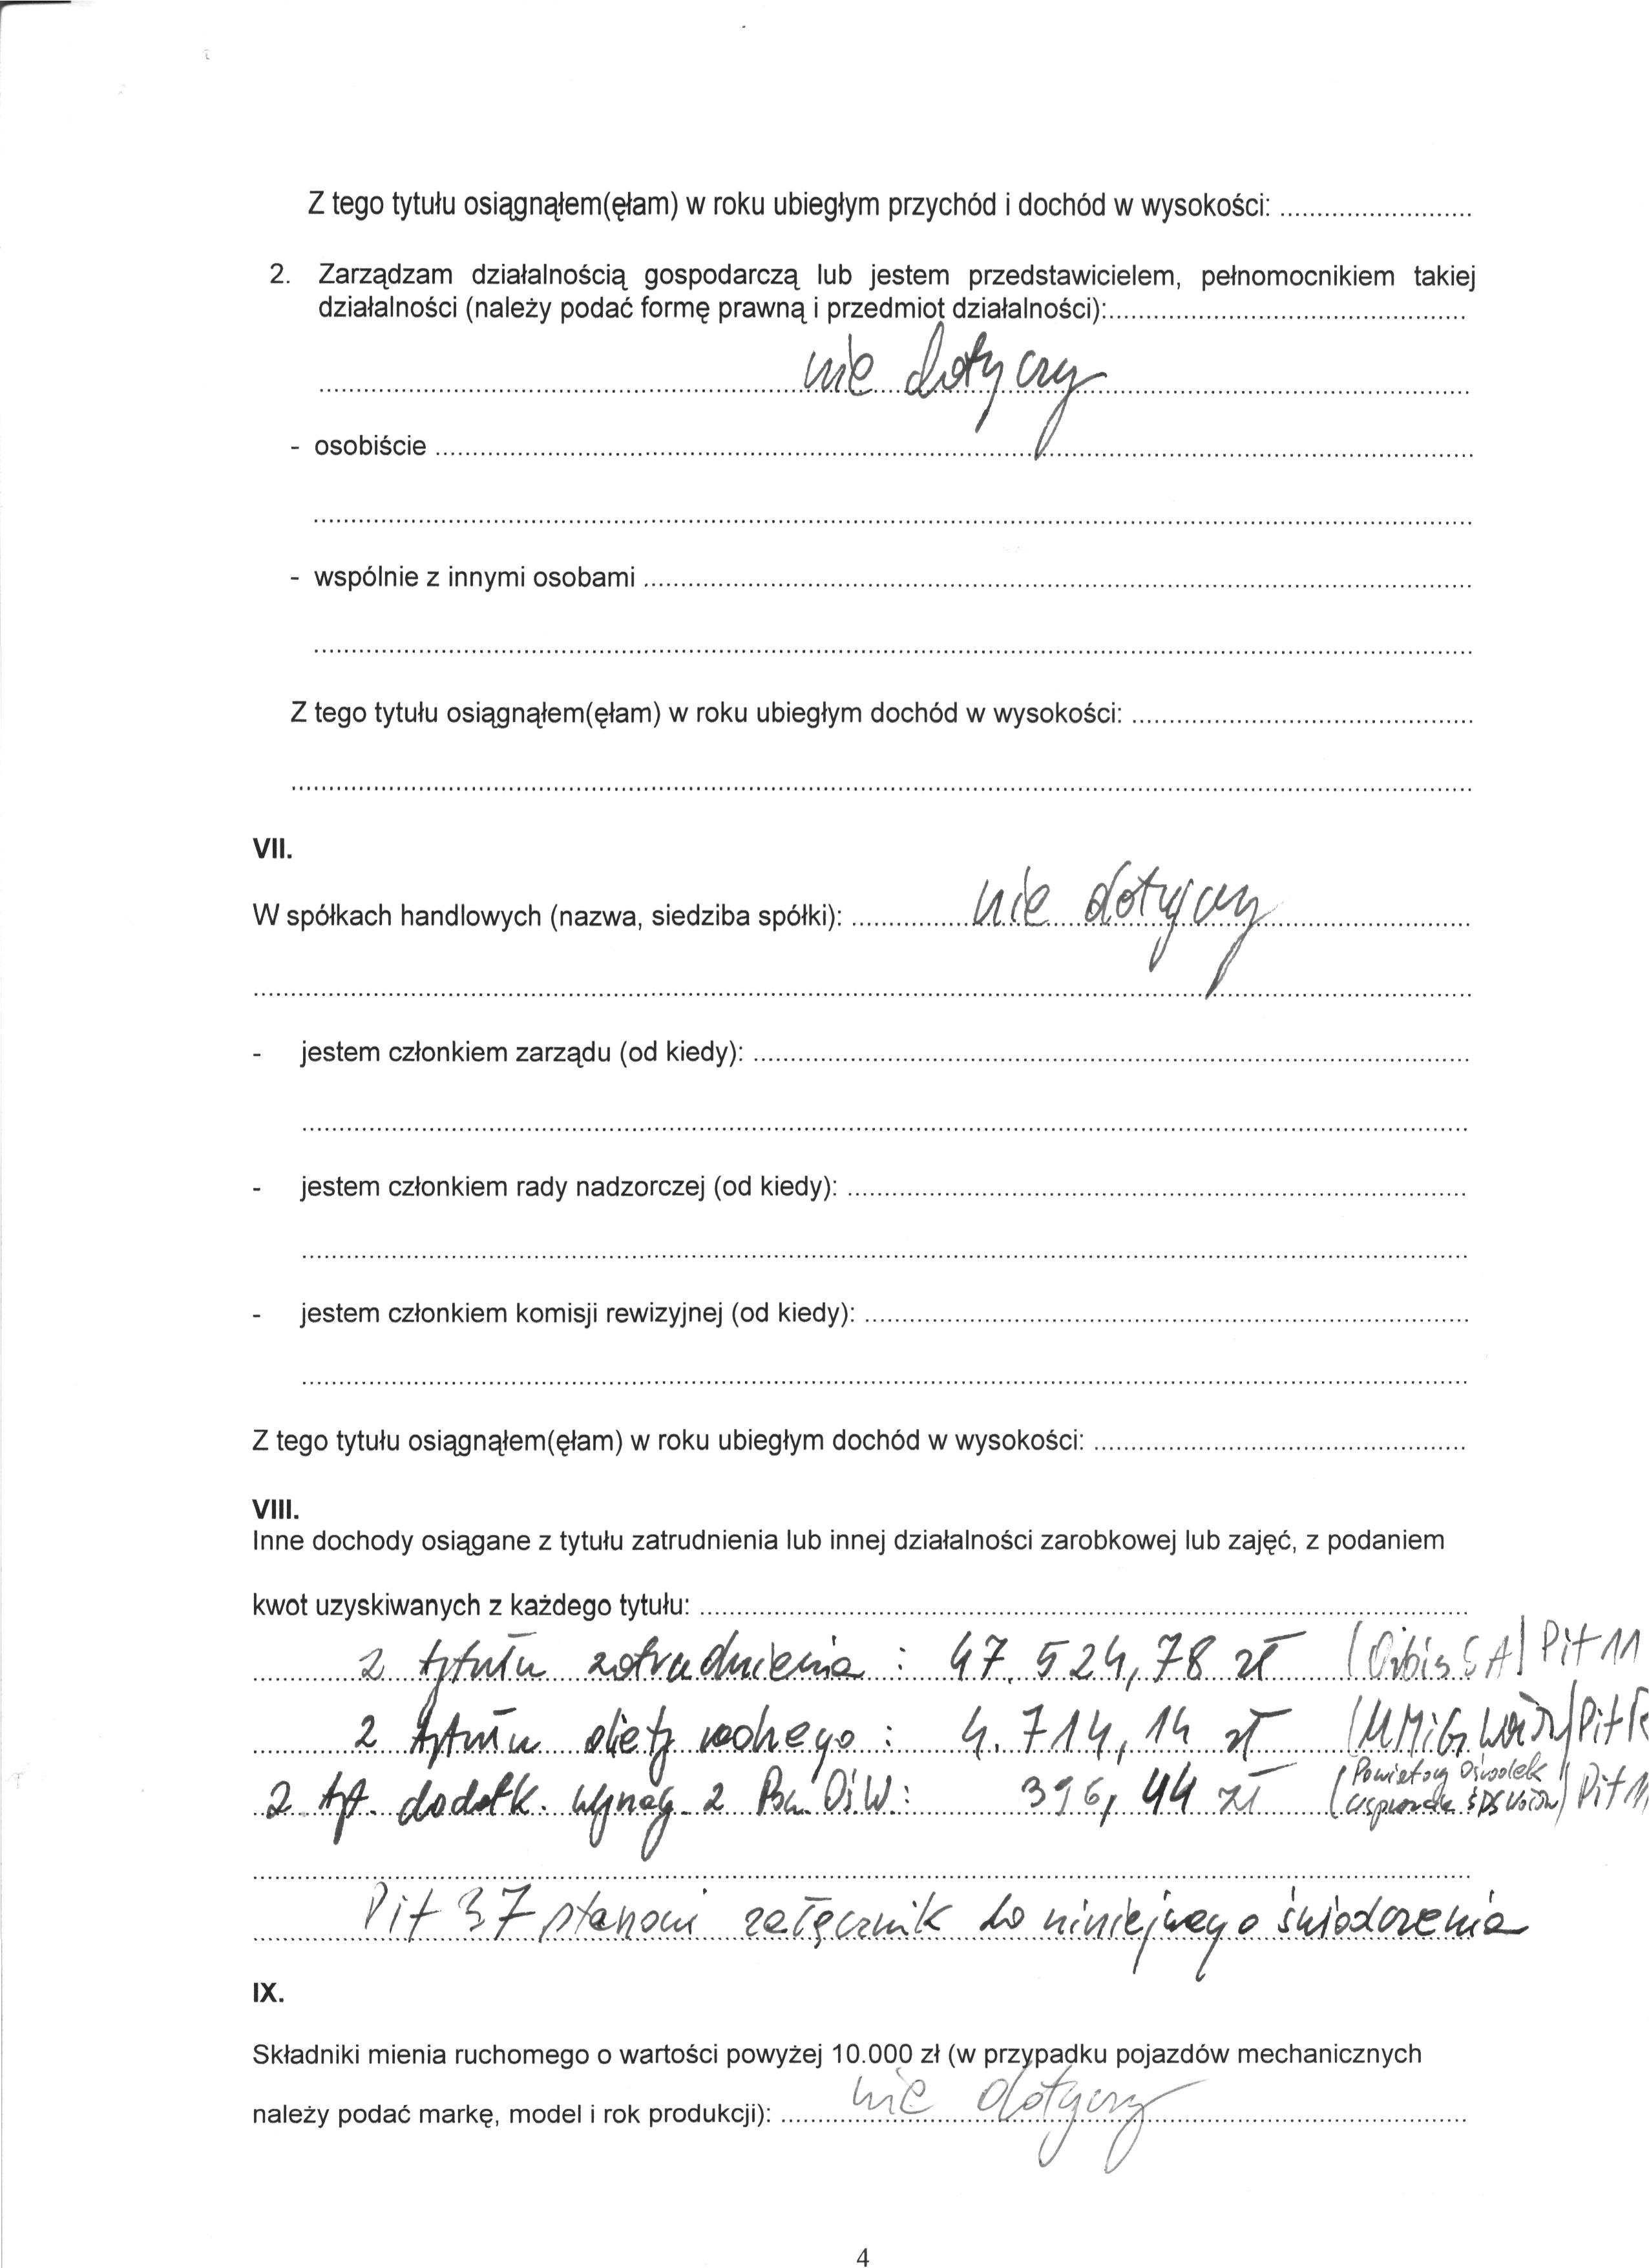 Z tego tytułu osiągnąłem(ęłam) w roku ubiegłym przychód i dochód w wysokości: ..........................
2. Zarządzam działalnością gospodarczą lub jestem przedstawicielem, pełnomocnikiem takiej
działalności (należy podać formę prawną i przedmiot działalności):................................................
nie dotyczy
- osobiście ..........................
- wspólnie z innymi osobami ..........................
Z tego tytułu osiągnąłem(ęłam) w roku ubiegłym dochód w wysokości: ..........................
VII.
W spółkach handlowych (nazwa, siedziba spółki): ................nie dotyczy..........................
- jestem członkiem zarządu (od kiedy): ..........................
- jestem członkiem rady nadzorczej (od kiedy): ..........................
- jestem członkiem komisji rewizyjnej (od kiedy): ..........................
Z tego tytułu osiągnąłem(ęłam) w roku ubiegłym dochód w wysokości: ..........................
VIII.
Inne dochody osiągane z tytułu zatrudnienia lub innej działalności zarobkowej lub zajęć, z podaniem
kwot uzyskiwanych z każdego tytułu: ..........................
z tytułu zatrudnienia : 47.524,78 zł (Orbis SA) Pit 11
z tytułu diety radnego : 4.714,14 zł Pit R
z tyt. dodatk. wynag. z OśW: 396,44 zł (Powiatowy Ośrodek Wsparcia ŚDS) Pit 11
Pit 37 stanowi załącznik do niniejszego świadczenia
IX.
Składniki mienia ruchomego o wartości powyżej 10.000 zł (w przypadku pojazdów mechanicznych
należy podać markę, model i rok produkcji): ............nie dotyczy..........................
4